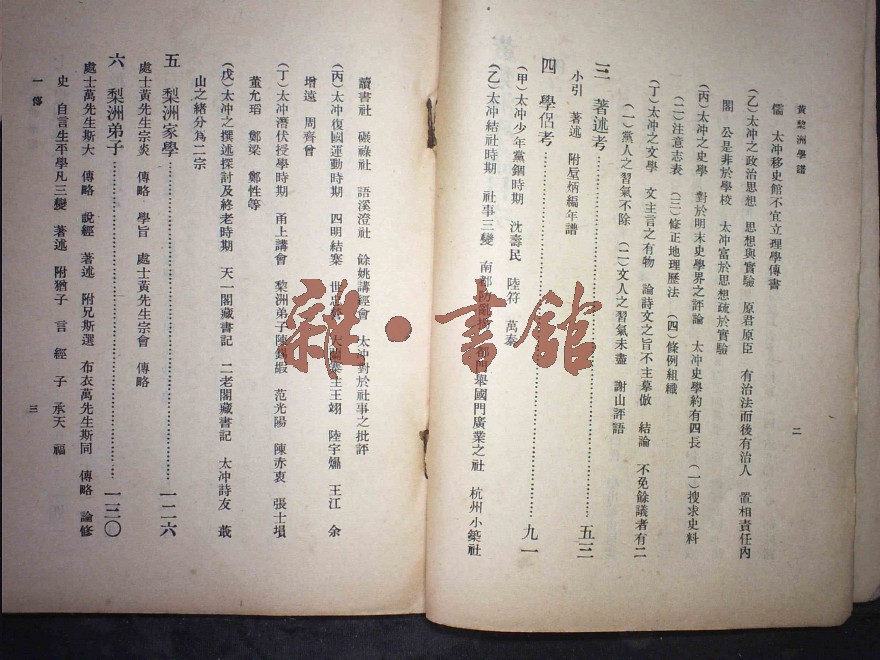 黃棃洲學譜
二
儒　太冲移史館不宜立理學傳書
（乙）太冲之政治思想　思想與實驗　原君原臣　有治法而後有治人　置相責任內
閣　公是非於學校　太冲富於思想疏於實驗
（丙）太冲之史學　對於明末史學界之評論　太冲史學約有四長　（一）搜求史料
（二）注意志表　（三）修正地理歷法　（四）條例組織
（丁）太冲之文學　文主言之有物　論詩文之旨不主摹倣　結論　不免餘議者有二
（一）黨人之習氣不除　（二）文人之習氣未盡　謝山評語
三　著述考……五三
小引　著述　附屋炳編年譜
四　學侶考……九一
（甲）太冲少年黨錮時期　沈壽民　陸符　萬泰
（乙）太冲結社時期　社事三變　南都　國門廣業之社　杭州小築社
讀書社　礹祿社　語溪澄社　餘姚講經會　太冲對於社事之批評
（丙）太冲復國運動時期　四明結寨　王翊　陸宇㷿　王江　余
增遠　周齊曾
（丁）太冲潛伏授學時期　甬上講會　棃洲弟子陳錫嘏　范光陽　陳赤衷　張士塤
董允瑫　鄭梁　鄭性等
（戊）太冲之撰述探討及終老時期　天一閣藏書記　二老閣藏書記　太冲詩友　蕺
山之緒分為二宗
五　梨洲家學……一二六
處士黃先生宗炎　傳略　學旨　處士黃先生宗會　傳略
六　梨洲弟子……一三〇
處士萬先生斯大　傳略　說經　著述　附兄斯選　布衣萬先生斯同　傳略　論修
史　自言生平學凡三變　著述　附猶子　言　經　子　承天　福
一傳
三
雜·書館